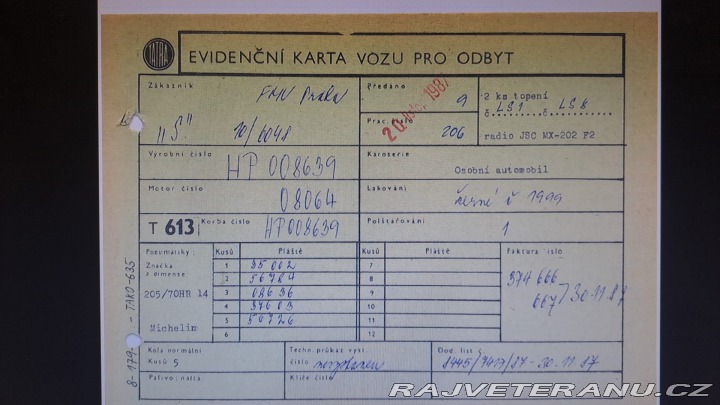 TATRA
EVIDENČNÍ KARTA VOZU PRO ODBYT
Zákazník
FMV Praha
"S" 10/6048
Předáno
9
20. 1987
Prac. číslo
206
2 ks topení
č. LS1 č. LS8
radio JSC MX-202 F2
Výrobní číslo
HP 008639
Karoserie
Osobní automobil
Motor číslo
08064
Lakování
černé č 1999
T 613
Korba číslo
HP008639
Polštářování
1
Pneumatiky:
Kusů
Pláště
Kusů
Pláště
Faktura číslo
Značka
z dimense
1
35002
7
2
56784
8
3
08636
9
4
37603
10
5
50726
11
6
12
205/70HR 14
Michelin
374 666
667 / 30.11.87
8-179 - TAKO-635
Kola normální
Kusů 5
Techn. průkaz vyst.
číslo
Dod. list č.
8445/7413/87 - 30.11.87
Palivo: nafta
Klíče číslo
RAJVETERANU.CZ